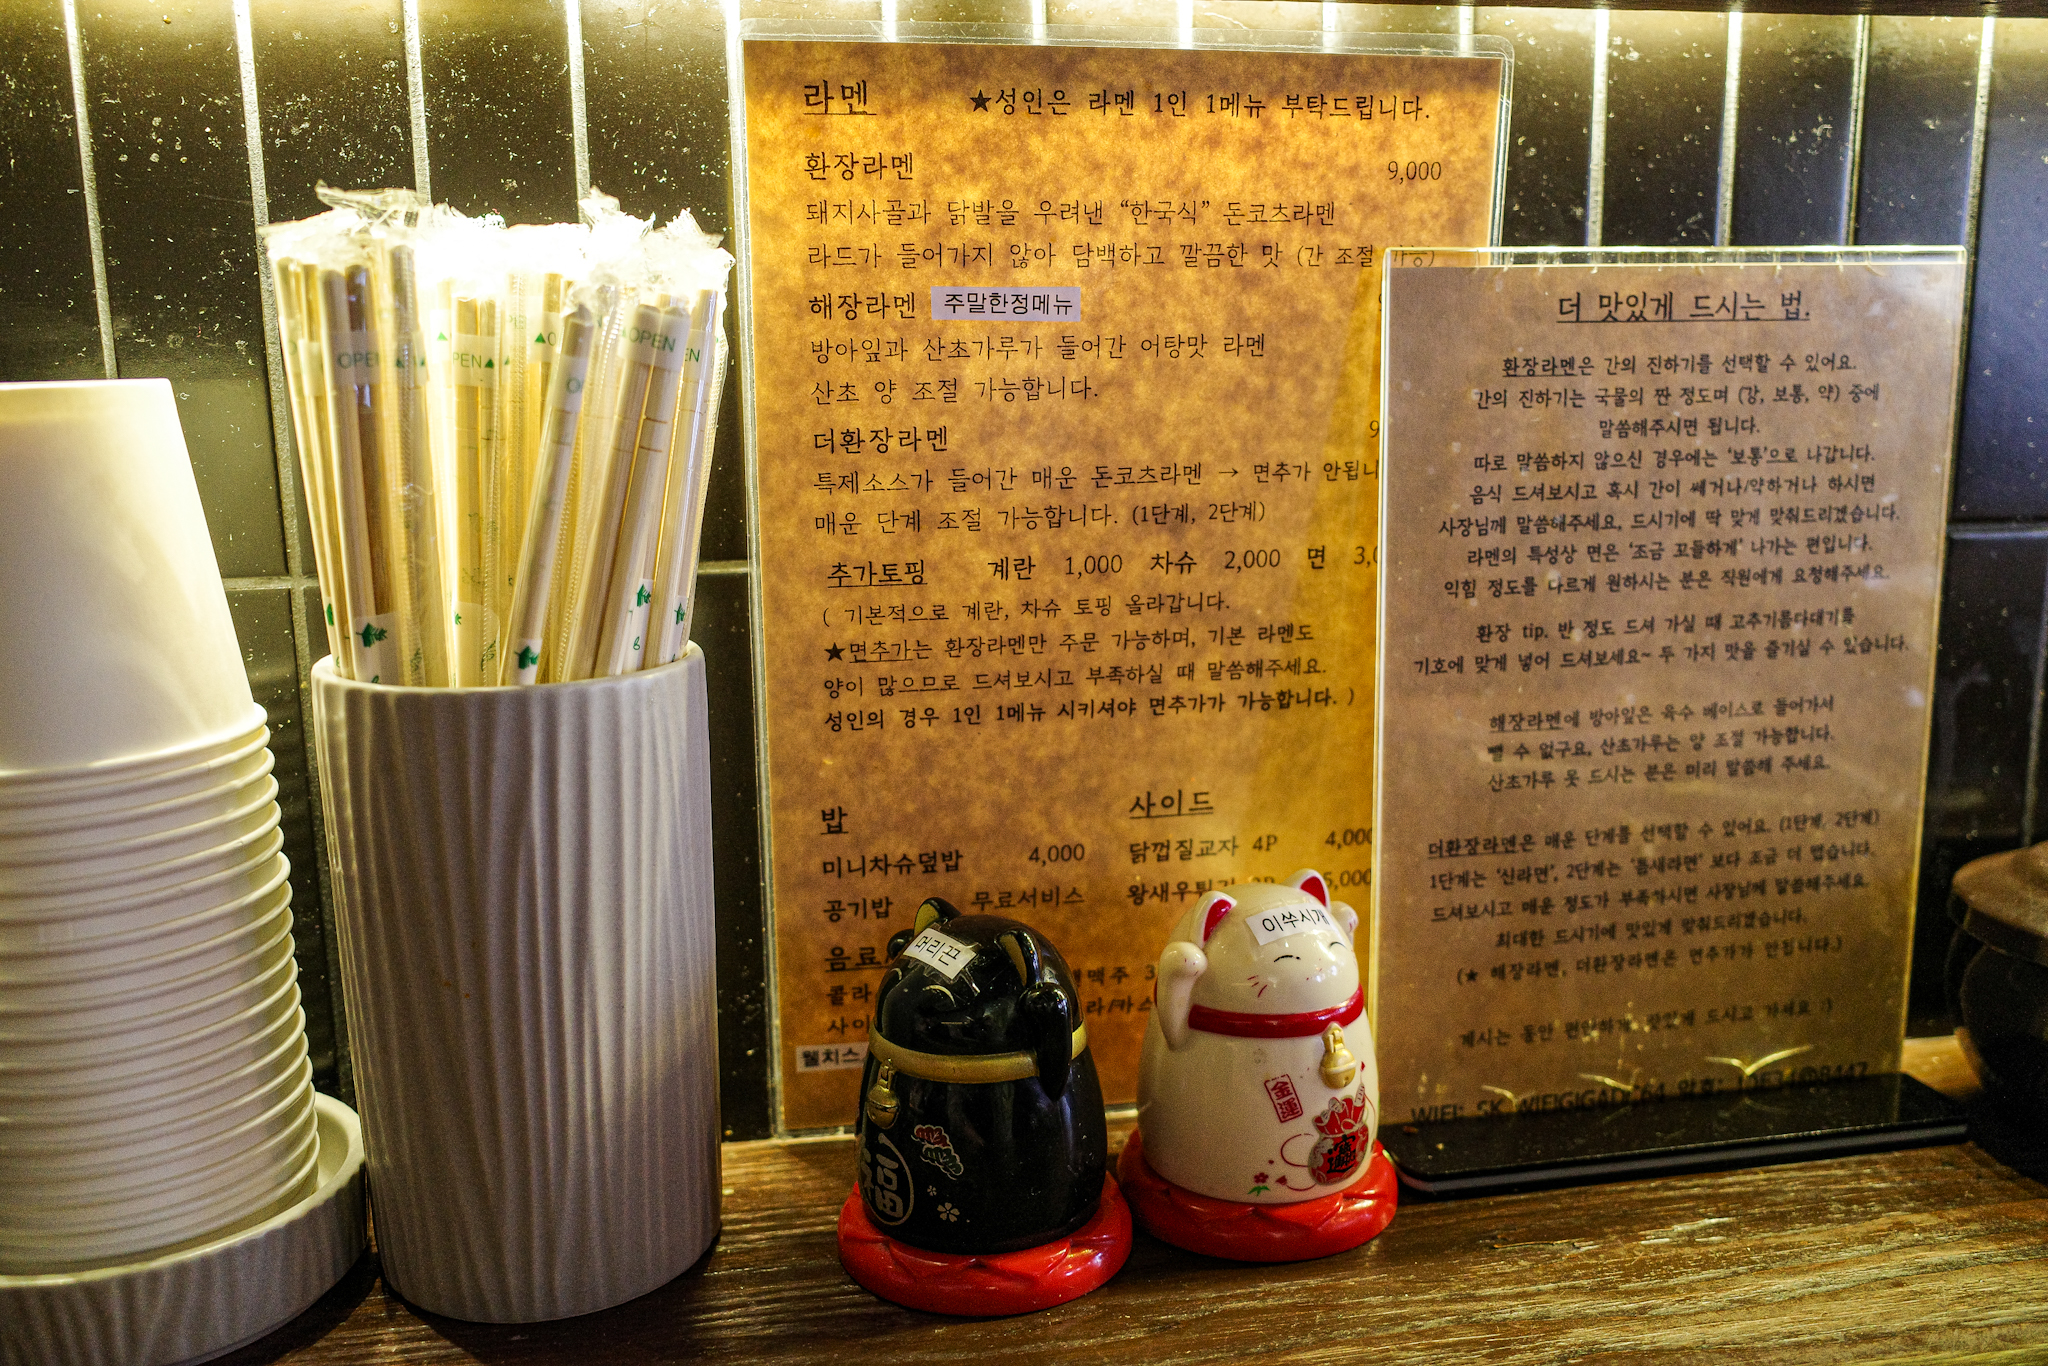 라멘 ★성인은 라멘 1인 1메뉴 부탁드립니다.
환장라멘 9,000
돼지사골과 닭발을 우려낸 “한국식” 돈코츠라멘
라드가 들어가지 않아 담백하고 깔끔한 맛 (간 조절 가능)
해장라멘 주말한정메뉴
방아잎과 산초가루가 들어간 어탕맛 라멘
산초 양 조절 가능합니다.
더환장라멘
특제소스가 들어간 매운 돈코츠라멘 → 면추가 안됩니
매운 단계 조절 가능합니다. (1단계, 2단계)
추가토핑 계란 1,000 차슈 2,000 면
( 기본적으로 계란, 차슈 토핑 올라갑니다.
★면추가는 환장라멘만 주문 가능하며, 기본 라멘도
양이 많으므로 드셔보시고 부족하실 때 말씀해주세요.
성인의 경우 1인 1메뉴 시키셔야 면추가가 가능합니다. )
밥
미니차슈덮밥 4,000
공기밥 무료서비스
사이드
닭껍질교자 4P 4,000
왕새우튀김 5,000
음료
콜라
사이
웰치스
맥주 3
더 맛있게 드시는 법.
환장라멘은 간의 진하기를 선택할 수 있어요.
간의 진하기는 국물의 짠 정도며 (강, 보통, 약) 중에
말씀해주시면 됩니다.
따로 말씀하지 않으신 경우에는 ‘보통’으로 나갑니다.
음식 드셔보시고 혹시 간이 쎄거나/약하거나 하시면
사장님께 말씀해주세요, 드시기에 딱 맞게 맞춰드리겠습니다.
라멘의 특성상 면은 ‘조금 꼬들하게’ 나가는 편입니다.
익힘 정도를 다르게 원하시는 분은 직원에게 요청해주세요.
환장 tip. 반 정도 드셔 가실 때 고추기름다대기를
기호에 맞게 넣어 드셔보세요~ 두 가지 맛을 즐기실 수 있습니다.
해장라멘에 방아잎은 육수 베이스로 들어가서
뺄 수 없구요, 산초가루는 양 조절 가능합니다.
산초가루 못 드시는 분은 미리 말씀해 주세요.
더환장라멘은 매운 단계를 선택할 수 있어요. (1단계, 2단계)
1단계는 ‘신라면’, 2단계는 ‘틈새라면’ 보다 조금 더 맵습니다.
드셔보시고 매운 정도가 부족하시면 사장님께 말씀해주세요.
최대한 드시기에 맛있게 맞춰드리겠습니다.
(★ 해장라멘, 더환장라멘은 면추가가 안됩니다.)
계시는 동안 편안하게, 맛있게 드시고 가세요 :)
WIFI: SK_WIFIGIGAD 암호:
머리끈
이쑤시개
金運
福
OPEN
OPEN